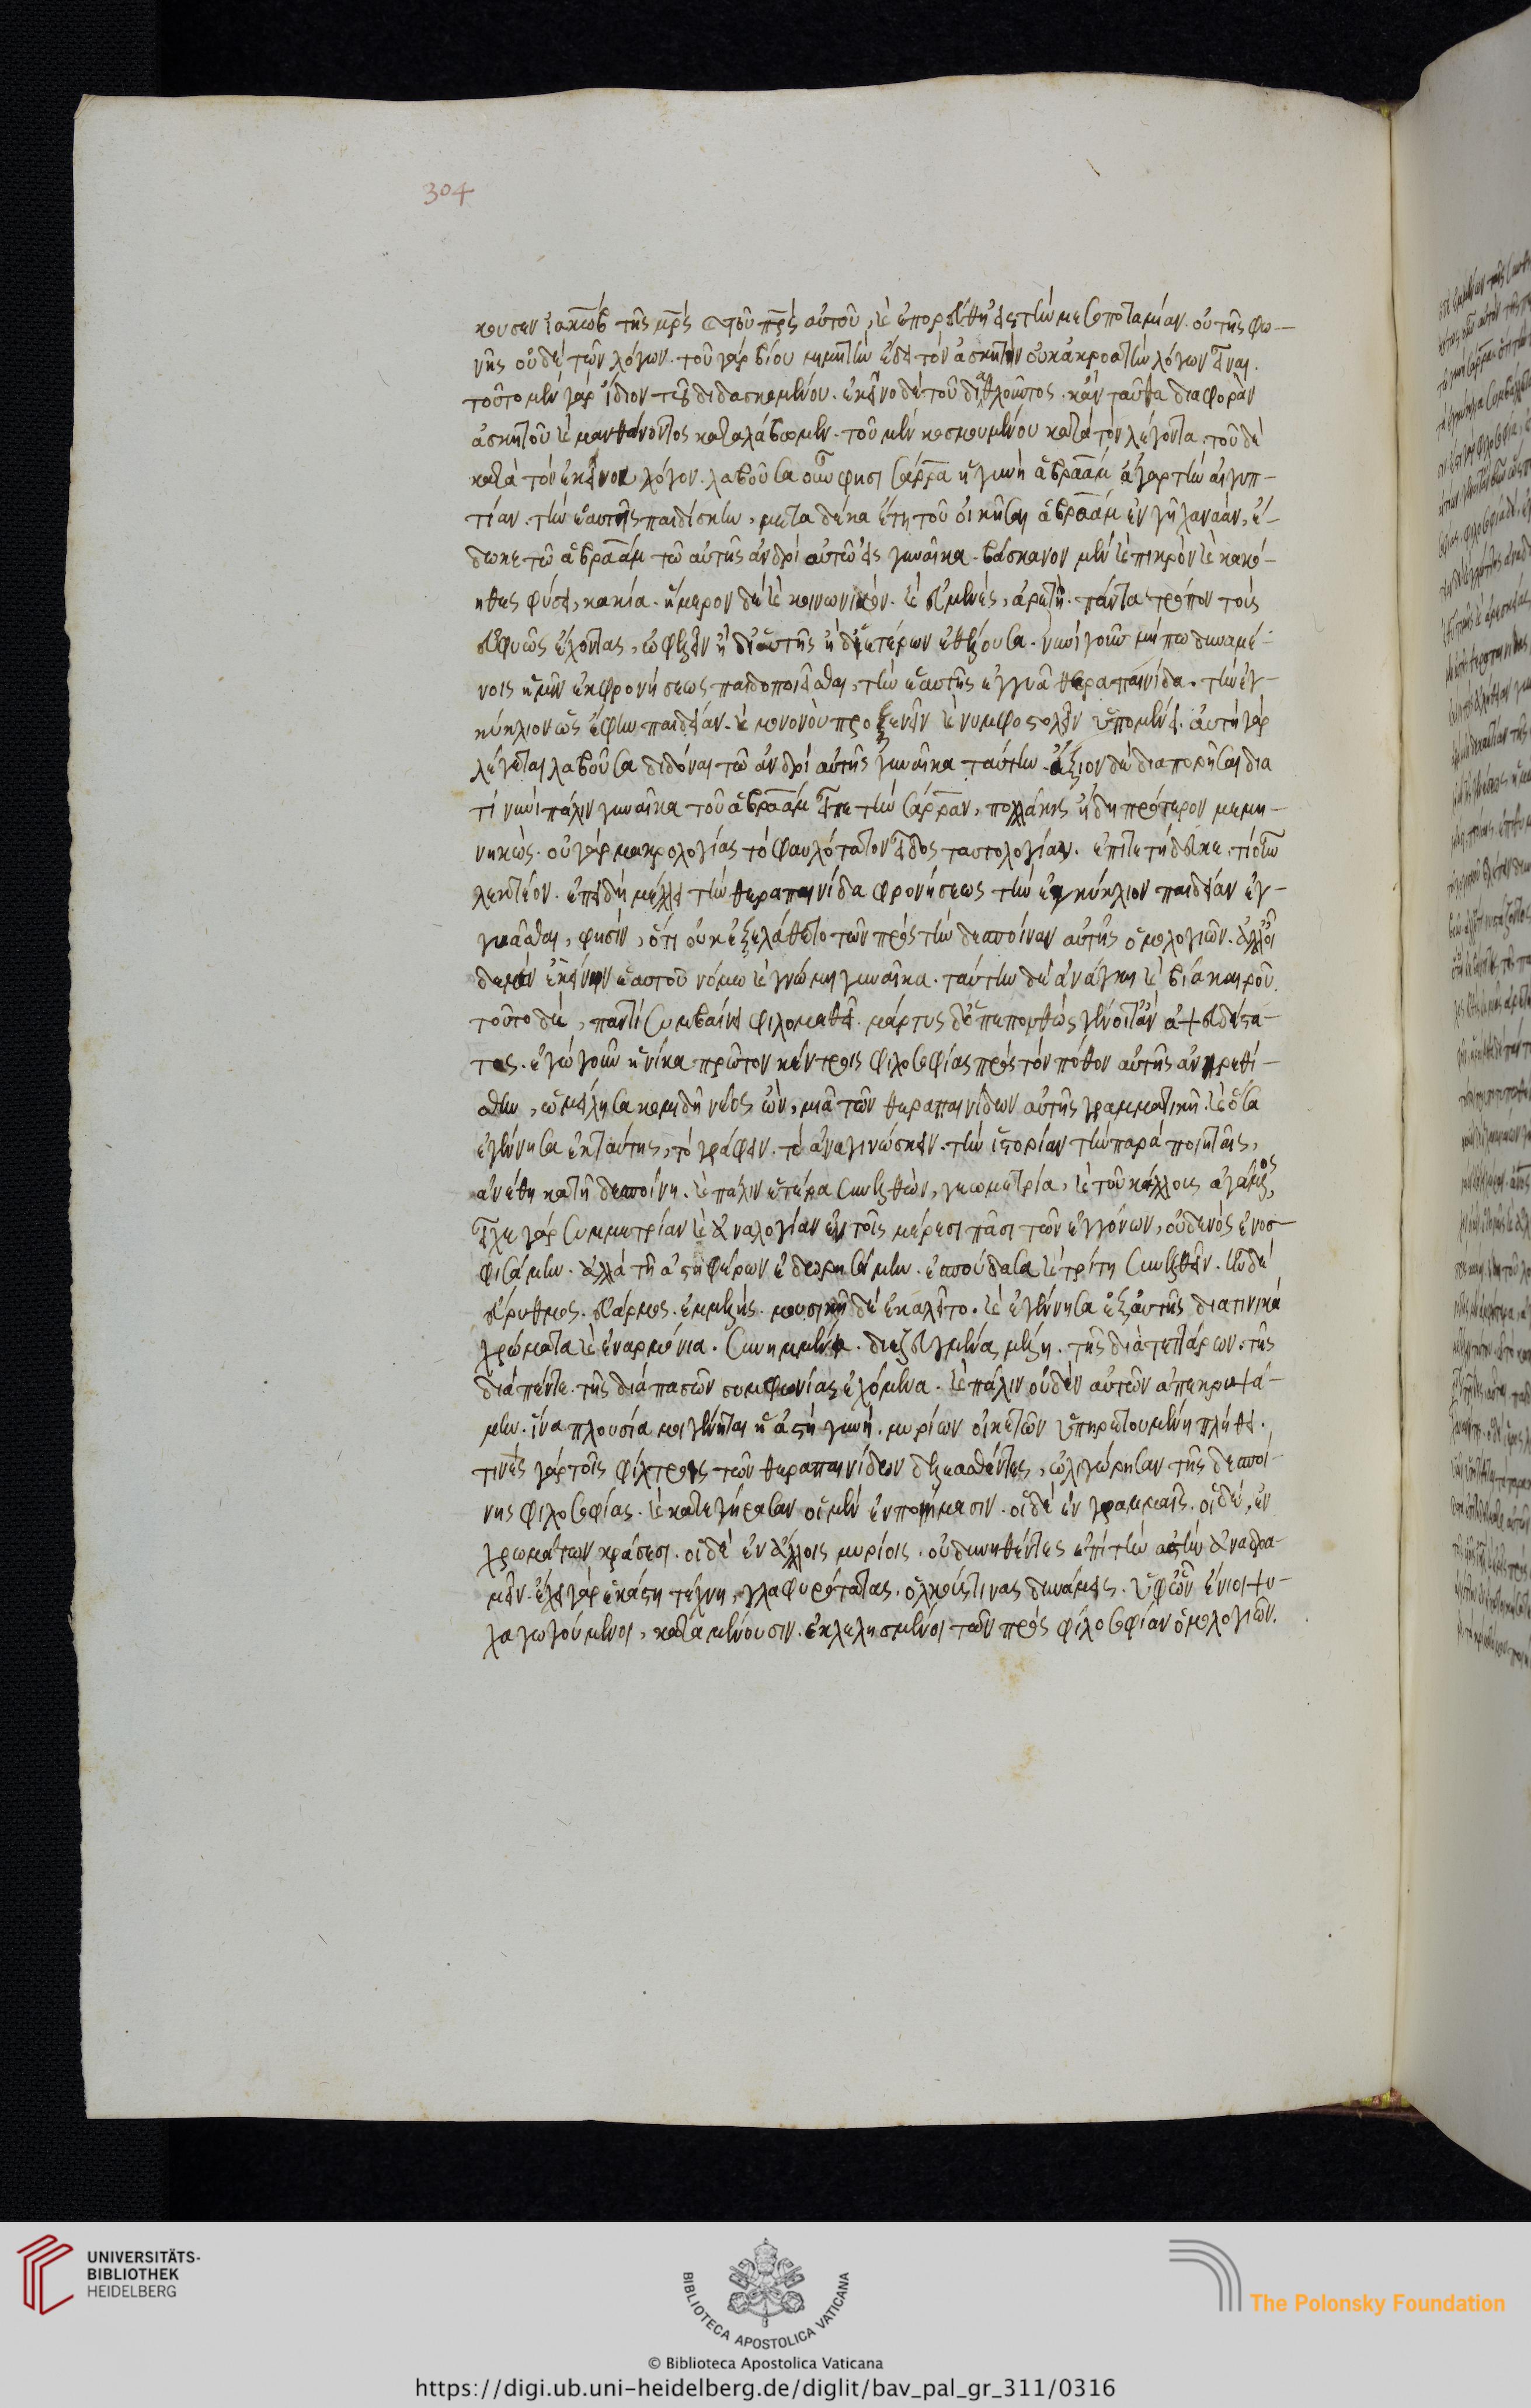 304
κουσεν ἰακὼβ τῆς μρς καὶ τοῦ πρς αὐτοῦ, καὶ ἐπορεύθη εἰς τὴν μεσοποταμίαν. οὐ τῆς φω-
νῆς οὐδὲ τῶν λόγων. τοῦ γὰρ βίου μιμητὴν ἔδει τὸν ἀσκητὴν οὐκ ἀκροατὴν λόγων εἶναι.
τοῦτο μὲν γὰρ ἴδιον τοῦ διδασκομένου. ἐκεῖνο δὲ τοῦ διαθλοῦντος. κἂν ταῦθα διαφορὰν
ἀσκητοῦ καὶ μανθάνοντος καταλάβωμεν. τοῦ μὲν κοσμουμένου κατὰ τὸν λέγοντα. τοῦ δὲ
κατὰ τὸν ἐκείνου λόγον. λαβοῦσα οὖν φησι σάρρα ἡ γυνὴ ἀβραὰμ ἄγαρ τὴν αἰγυπ-
τίαν. τὴν ἑαυτῆς παιδίσκην, μετὰ δέκα ἔτη τοῦ οἰκῆσαι ἀβραὰμ ἐν γῇ χαναάν, ἔ-
δωκε τῷ ἀβραὰμ τῷ αὐτῆς ἀνδρὶ αὐτῷ εἰς γυναῖκα. βάσκανον μὲν καὶ πικρὸν καὶ κακό-
ηθες φύσει, κακία. ἥμερον δὲ καὶ κοινωνικόν. καὶ εὐμενές, ἀρετή. πάντα τρόπον τοὺς
εὐφυῶς ἔχοντας, ὠφελεῖν ἢ δι' ἑαυτῆς ἢ δι' ἑτέρων ἐθέλουσα. νυνὶ γοῦν μήπω δυναμέ-
νοις ἡμῖν ἐκ φρονήσεως παιδοποιεῖσθαι, τὴν ἑαυτῆς ἐγγυᾷ θεραπαινίδα. τὴν ἐγ-
κύκλιον ὡς ἔφην παιδείαν. καὶ μονονοὺ προξενεῖν καὶ νυμφοστολεῖν ὑπομένει. αὐτὴ γὰρ
λέγεται λαβοῦσα διδόναι τῷ ἀνδρὶ αὐτῆς γυναῖκα ταύτην. ἄξιον δὲ διαπορῆσαι δια
τί νυνὶ πάλιν γυναῖκα τοῦ ἀβραὰμ εἶπε τὴν σάρραν, πολλάκις ἤδη πρότερον μεμη-
νηκώς. οὐ γὰρ μακρολογίας τὸ φαυλότατον εἶδος ταυτολογίαν. ἐπιτετήδευκε. τί οὖν
λεκτέον. ἐπειδὴ μέλλει τὴν θεραπαινίδα φρονήσεως τὴν ἐγκύκλιον παιδείαν ἐγ-
γυᾶσθαι, φησίν, ὅτι οὐκ ἐξελάθετο τῶν πρὸς τὴν δεσποίναν αὐτῆς ὁμολογιῶν. ἀλλ' οἶ
δεμὲν ἐκείνην ἑαυτοῦ νόμῳ καὶ γνώμῃ γυναῖκα. ταύτην δὲ ἀνάγκῃ καὶ βίᾳ καιροῦ.
τοῦτο δὲ, παντὶ συμβαίνει φιλομαθεῖ. μάρτυς δ' ὁ πεπονθὼς γένοιτ' ἂν ἀψευδέστα-
τος. ἐγὼ γοῦν ἡνίκα πρῶτον κέντροις φιλοσοφίας πρὸς τὸν πόθον αὐτῆς ἀνηρεθί-
σθην, ὡμίλησα κομιδῇ νέος ὤν, μιᾷ τῶν θεραπαινίδων αὐτῆς γραμματικῇ. καὶ ὅσα
ἐγέννησα ἐκ ταύτης, τὸ γράφειν. τὸ ἀναγινώσκειν. τὴν ἱστορίαν τὴν παρὰ ποιηταῖς,
ἀνέθηκα τῇ δεσποίνῃ. καὶ πάλιν ἑτέρα συνελθών, γεωμετρία, καὶ τοῦ κάλλους ἀγάμενος,
εἶχε γὰρ συμμετρίαν καὶ ἀναλογίαν ἐν τοῖς μέρεσι πᾶσι τῶν ἐγγόνων, οὐδενὸς ἐνοσ-
φισάμην. ἀλλὰ τῇ ἀστῇ φέρων ἐδωρησάμην. ἐσπούδασα καὶ τρίτῃ συνελθεῖν. ἦν δὲ
εὔρυθμος. εὐάρμος. ἐμμελής. μουσικὴ δὲ ἐκαλεῖτο. καὶ ἐγέννησα ἐξ αὐτῆς διατινικὰ
χρώματα καὶ ἐναρμόνια. συνημμένα. διεζευγμένας μέλη. τῆς διὰ τεττάρων. τῆς
διὰ πέντε. τῆς διὰ πασῶν συμφωνίας ἐχόμενα. καὶ πάλιν οὐδὲν αὐτῶν ἀπεκρυψά-
μην. ἵνα πλουσία μοι γένηται ἡ ἀστὴ γυνή. μυρίων οἰκετῶν ὑπηρετουμένη πλήθει.
τινὲς γὰρ τοῖς φίλτροις τῶν θεραπαινίδων δελεασθέντες, ὠλιγώρησαν τῆς δεσποί-
νης φιλοσοφίας. καὶ κατεγήρασαν οἱ μὲν ἐν ποιήμασιν. οἱ δὲ ἐν γραμμαῖς. οἱ δέ, ἐν
χρωμάτων κράσεσι. οἱ δὲ ἐν ἄλλοις μυρίοις. οὐ δυνηθέντες ἐπὶ τὴν ἀστὴν ἀναδρα-
μεῖν. ἔχει γὰρ ἑκάστη τέχνη, γλαφυρότατας. ὁλκούς τινας δυνάμεις. ὑφ' ὧν ἔνιοι ψυ-
χαγωγούμενοι, καταμένουσιν. ἐκλελησμένοι τῶν πρὸς φιλοσοφίαν ὁμολογιῶν.
UNIVERSITÄTS-
BIBLIOTHEK
HEIDELBERG
BIBLIOTECA APOSTOLICA VATICANA
The Polonsky Foundation
© Biblioteca Apostolica Vaticana
https://digi.ub.uni-heidelberg.de/diglit/bav_pal_gr_311/0316